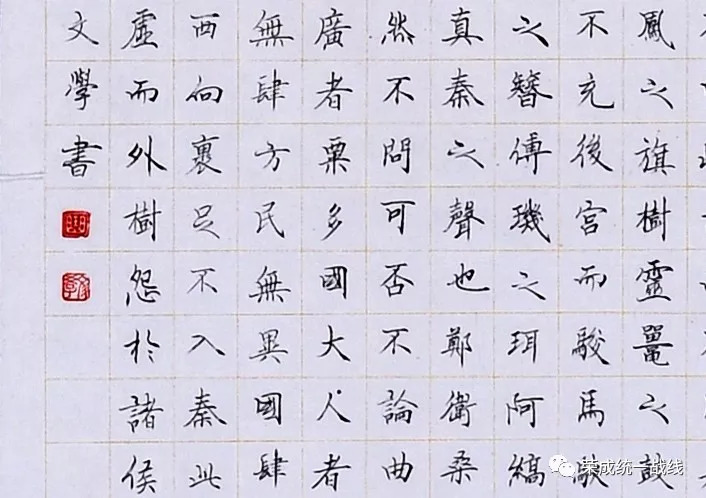 鳳之旗樹靈鼉之鼓
不充後宮而駿馬
之簪傅璣之珥阿縞
真秦之聲也鄭衛桑
然不問可否不論曲
廣者粟多國大人者
無肆方民無異國肆
西向裹足不入秦此
虛而外樹怨於諸侯
文學書
荣成统一战线